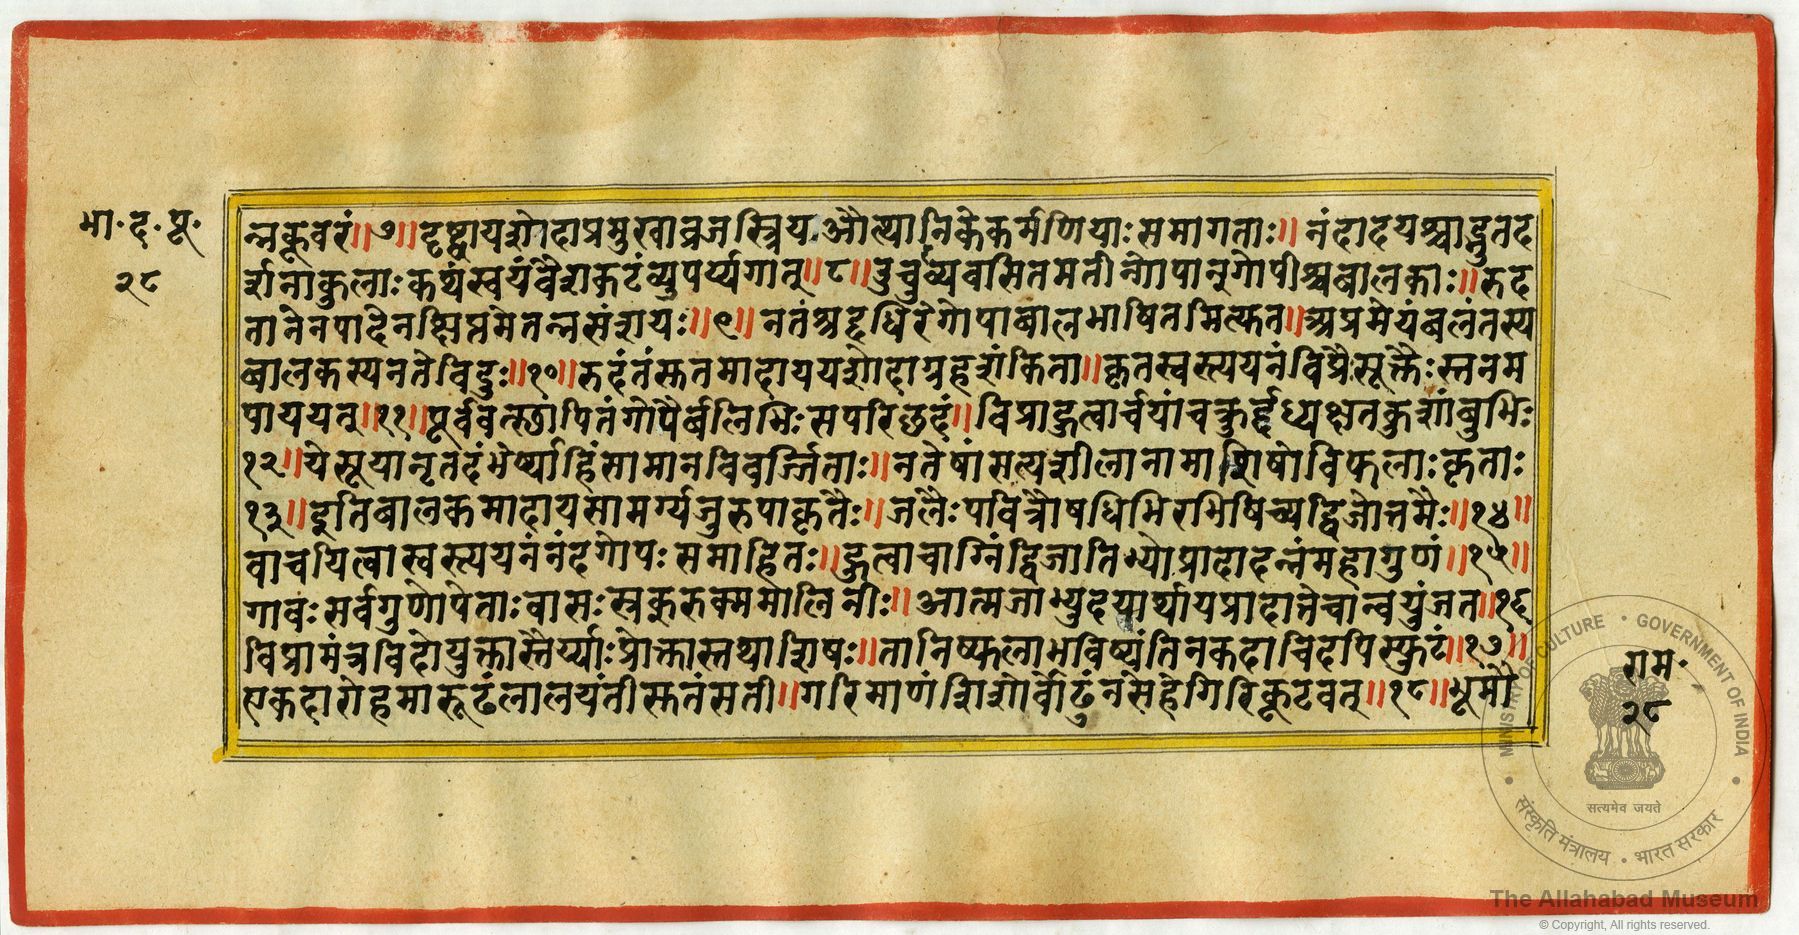 भा॰द॰पू॰
२८
न्नकूवरं॥७॥दृष्ट्वायशोदाप्रमुखाव्रजस्त्रियऔत्थानिकेकर्मणियाःसमागताः॥नंदादयश्चाद्भुतद
र्शनाकुलाःकथंस्वयंवैशकटंव्युपर्य्यगात्॥८॥उचुर्व्यवसितमतीन्गोपान्गोपीश्चबालकाः॥रुद
तानेनपादेनक्षिप्तमेतन्नसंशयः॥९॥नतंश्रद्दधिरेगोपाबालभाषितमित्युत॥अप्रमेयंबलंतस्य
बालकस्यनतेविदुः॥१०॥रुदंतंसुतमादाययशोदाग्रहशंकिता॥कृतस्वस्त्ययनंविप्रैःसूक्तैःस्तनम
पाययत्॥११॥पूर्ववत्स्थापितंगोपैर्बलिभिःसपरिछदं॥विप्राहुत्वार्चयांचक्रुर्द्दध्यक्षतकुशांबुभिः
१२॥येसूयानृतदंभेर्ष्याहिंसामानविवर्ज्जिताः॥नतेषांसत्यशीलानामाशिषोविफलाःकृताः
१३॥इतिबालकमादायसामर्ग्यजुरुपाकृतैः॥जलैःपवित्रौषधिभिरभिषिच्यद्विजोत्तमैः॥१४॥
वाचयित्वास्वस्त्ययनंनंदगोपःसमाहितः॥हुत्वाचाग्निंद्विजातिभ्योप्रादादन्नंमहागुणं॥१५॥
गावःसर्वगुणोपेतावासःस्रक्रुरुक्ममालिनीः॥आत्मजाभ्युदयार्थायप्रादात्तेचान्वयुंजत॥१६
विप्रामंत्रविदोयुक्तास्तैर्य्याःप्रोक्तास्तथाशिषः॥तानिष्फलाभविष्यंतिनकदाचिदपिस्फुटं॥१७॥
एकदारोहमारूढंलालयंतीसुतंसती॥गरिमाणंशिशोर्वोढुंनसेहेगिरिकूटवत्॥१८॥भूमौ
राम॰
२८
MINISTRY OF CULTURE • GOVERNMENT OF INDIA
सत्यमेव जयते
संस्कृति मंत्रालय • भारत सरकार
The Allahabad Museum
© Copyright, All rights reserved.